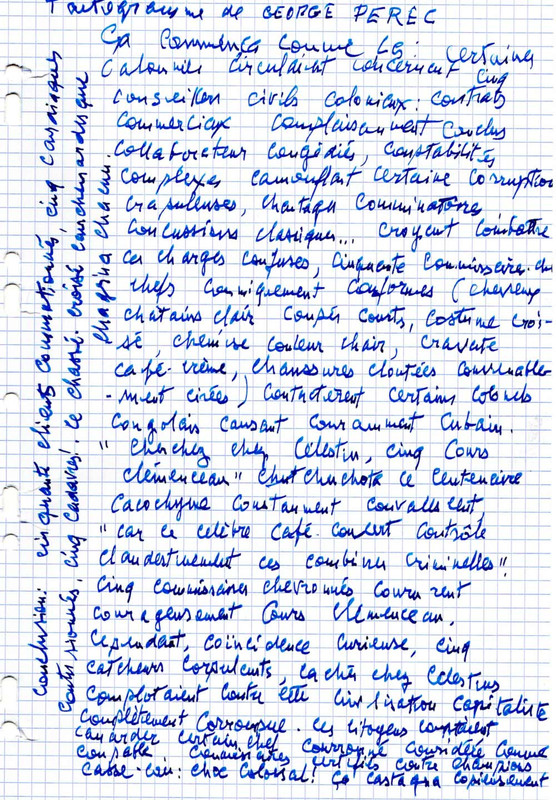 Tautogramme de GEORGE PEREC
Ça commença comme ça : certaines
calomnies circulaient concernant cinq
conseillers civils coloniaux : contrats
commerciaux complaisamment conclus
collaborateur congédiés, comptabilités
complexes camouflant certaine corruption
crapuleuses, chantages comminatoires
concussions classiques... croyant combattre
ces charges confuses, cinquante commissaires-en-
chefs comiquement conformes (cheveux
chatains clair coupés courts, costume croi-
sé, chemise couleur chair, cravate
café-crème, chaussures cloutées convenable-
-ment cirées) contactèrent certains colonels
congolais causant couramment cubain.
"Cherchez chez Célestin, cinq Cours
Clémenceau" chutchuchota ce centenaire
cacochyme constamment convalescent,
"car ce célèbre café-concert contrôle
clandestinement ces combines criminelles"!
Cinq commissaires chevronnés coururent
courageusement Cours Clémenceau.
Cependant, coïncidence curieuse, cinq
catcheurs corpulents, cachés chez Célestins
complotaient contre cette civilisation capitaliste
complètement corrompue. Ces citoyens comptaient
canarder certain chef couronné considéré comme
coupable. Commissaires certifiés contre champions
casse-cou : choc colossal! Ça castagna copieusement
Conclusion: cinquante clients commotionnés, cinq canaques
contusionnés, cinq cadavres! Ce chassé-croisé cauchemardesque
chagrina chacun.